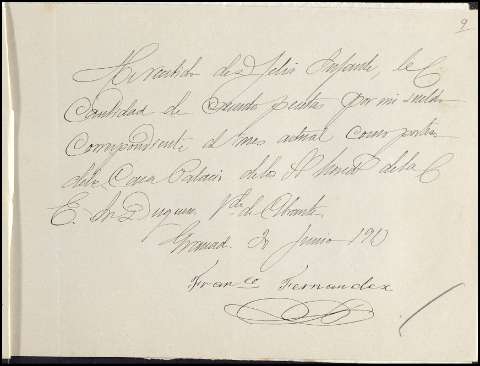 9
He recibido de Felix Infante, la
Cantidad de pesetas por mi sueldo
Correspondiente al mes actual como portero
de la Casa Palacio de los de la
E. Sr. Duquesa Vda de Abrantes
Granada 30 Junio 190
Franco Fernandez